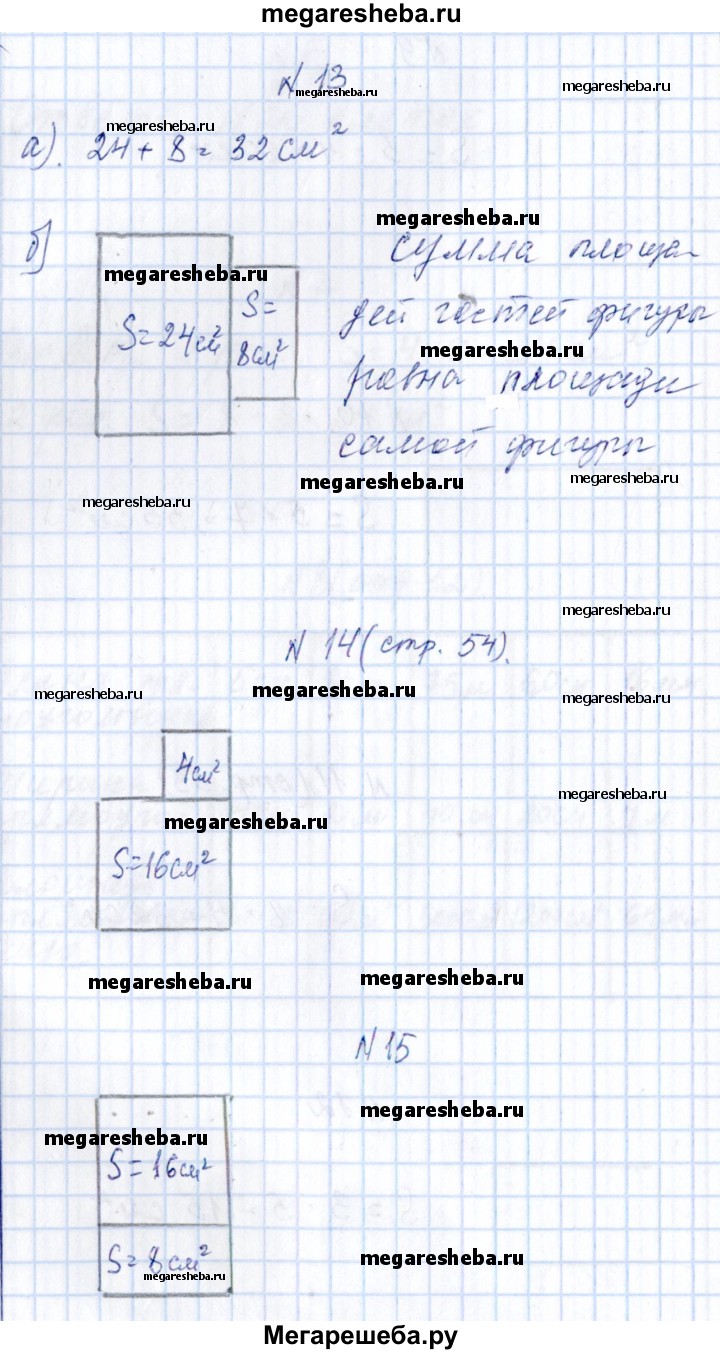 megaresheba.ru
N 13
megaresheba.ru
megaresheba.ru
megaresheba.ru
а). 24 + 8 = 32 см²
megaresheba.ru
б)
сумма площа-
megaresheba.ru
S = 24 см²
S =
8 см²
дей частей фигуры
megaresheba.ru
равна площади
самой фигуры
megaresheba.ru
megaresheba.ru
megaresheba.ru
megaresheba.ru
N 14 (стр. 54).
megaresheba.ru
megaresheba.ru
megaresheba.ru
4 см²
megaresheba.ru
megaresheba.ru
S = 16 см²
megaresheba.ru
megaresheba.ru
N 15
megaresheba.ru
megaresheba.ru
S = 16 см²
S = 8 см²
megaresheba.ru
megaresheba.ru
Мегарешеба.ру